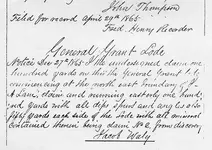 John Thompson
Filed for record April 29th 1865.
Fred. Henry Recorder
General Grant Lode
Notice Nov 27th 1865 I the undersigned claim one
hundred yards on the General Grant
commencing at the north east boundary of
claim and running easterly one hund-
red yards with all dips spurs and angles also
fifty yards each side of the lode with all mineral
contained therein being claim No from discovery
Jacob Waly